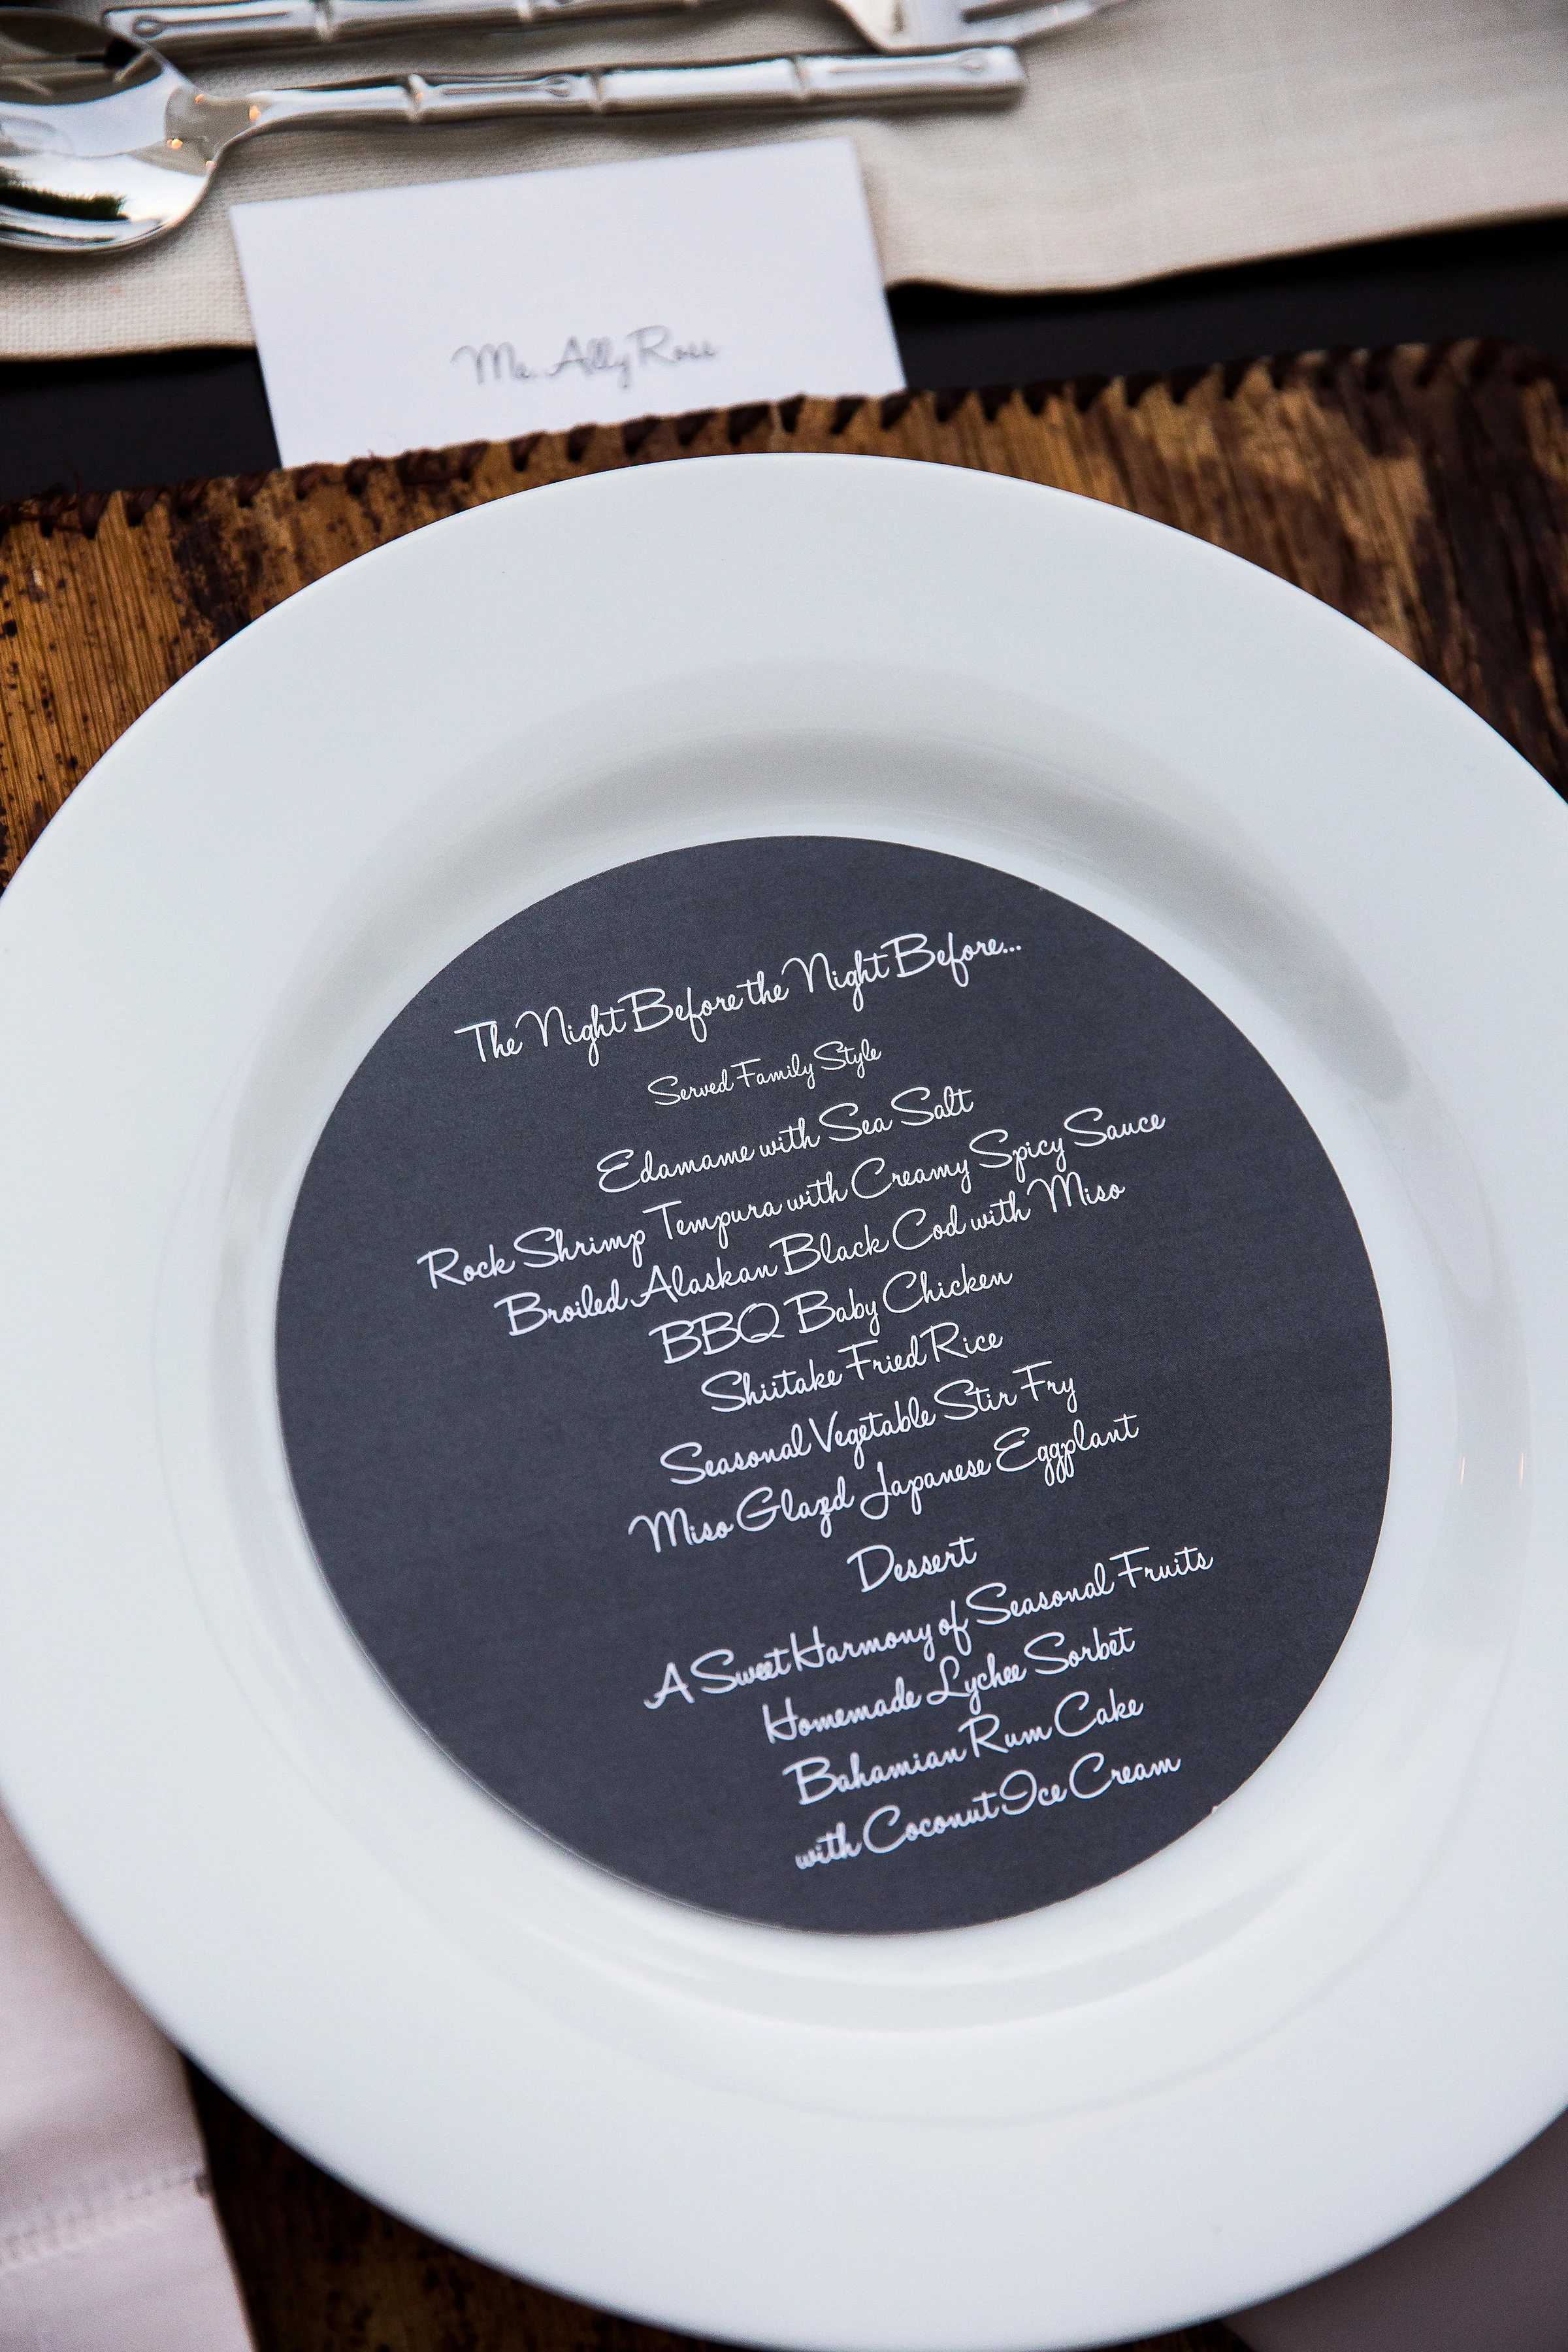 Ms. Ally Ross
The Night Before the Night Before...
Served Family Style
Edamame with Sea Salt
Rock Shrimp Tempura with Creamy Spicy Sauce
Broiled Alaskan Black Cod with Miso
BBQ Baby Chicken
Shiitake Fried Rice
Seasonal Vegetable Stir Fry
Miso Glazed Japanese Eggplant
Dessert
A Sweet Harmony of Seasonal Fruits
Homemade Lychee Sorbet
Bahamian Rum Cake
with Coconut Ice Cream